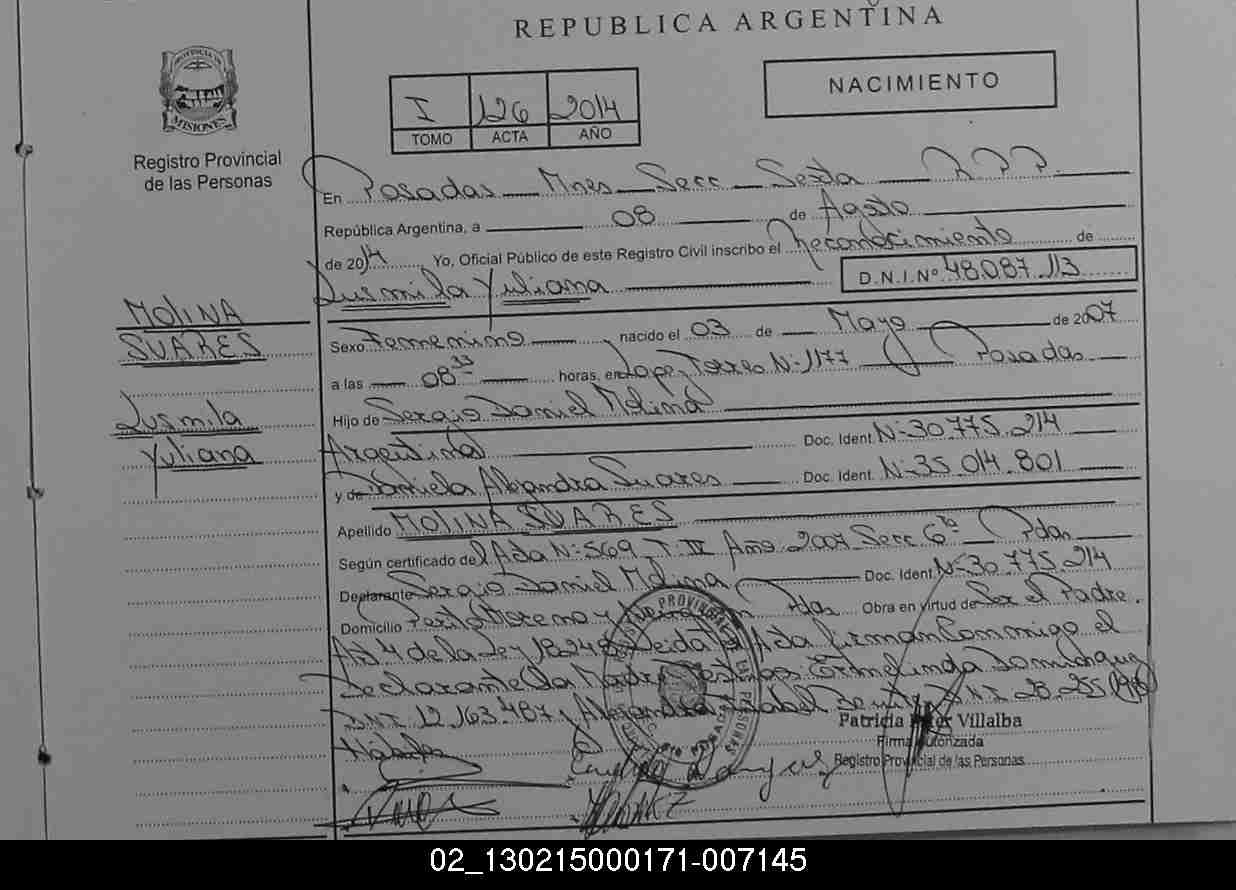 REPUBLICA ARGENTINA
PROVINCIA DE
MISIONES
Registro Provincial
de las Personas
NACIMIENTO
I 126 2014
TOMO ACTA AÑO
En Posadas Mnes Secc Sexta R.P.P.
República Argentina, a 08 de Agosto
de 2014 Yo, Oficial Público de este Registro Civil inscribo el Reconocimiento de
Lusmila Yuliana D.N.I.Nº 48.087.113
MOLINA
SUARES
Lusmila
Yuliana
Sexo Femenino nacido el 03 de Mayo de 2007
a las 08 33 horas, en Lopez Torres N: 1177 Posadas
Hijo de Sergio Daniel Molina
Argentina Doc. Ident. N: 30.775.214
y de Daniela Alejandra Suares Doc. Ident. N: 35.014.801
Apellido MOLINA SUARES
Según certificado del Acta N: 569 T: II Año 2007 Secc 6ta Pdas
Declarante Sergio Daniel Molina Doc. Ident. N: 30.775.214
Domicilio Perito Moreno y Pdas Obra en virtud de Ser el Padre.
Art 4 de la Ley 18.248 Leida el Acta firman Conmigo el
Declarante la Madre Testigos Ermelinda Dominguez
DNI 12.163.487 y Alejandra Isabel DNI 28.255.198
Patricia Villalba
Firma Autorizada
Registro Provincial de las Personas
02_130215000171-007145